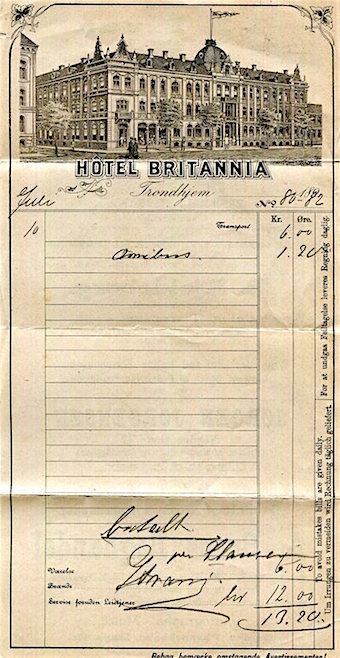 HÔTEL BRITANNIA
Trondhjem
Juli No 80-1181/82
Kr. Øre.
10 Transport 6.00
Omnibus. 1.20
For at undgaa Feiltagelse leveres Regning daglig.
To avoid mistakes bills are given daily.
Um Irrungen zu vermeiden wird Rechnung täglich geliefert.
Betalt
per
Værelse 6.00
Brænde Kr 12.00
Service foruden Leietjener 13.20
Behag bemærke omstaaende Avertissementer!